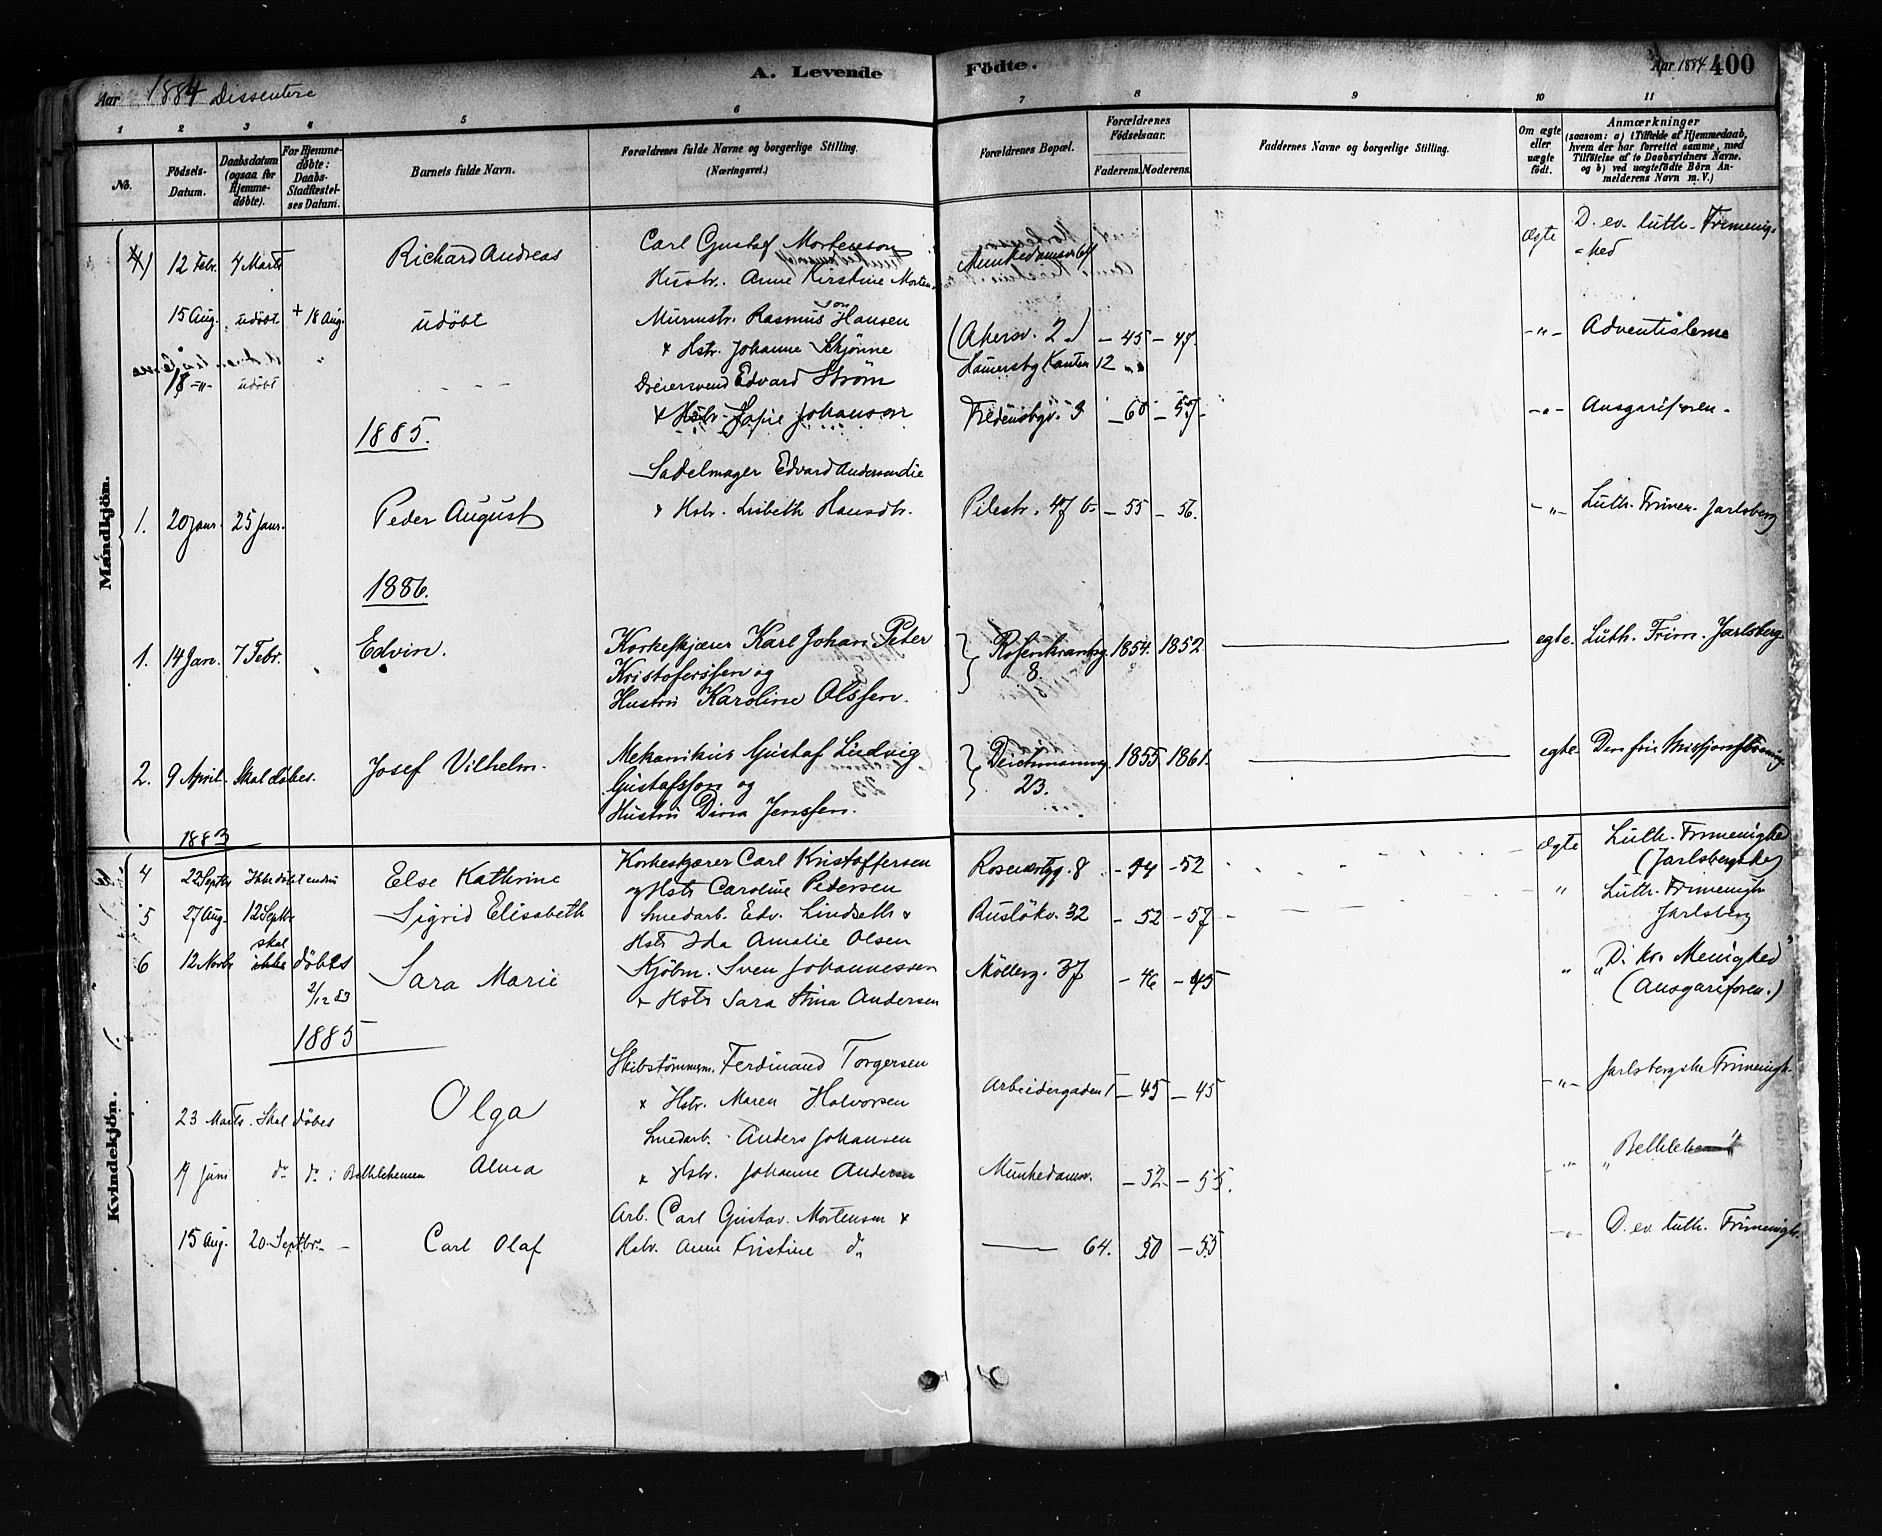 Aar 1884 Dissentere
A. Levende Födte.
Aar 1884 400
1 2 3 4 5 6 7 8 9 10 11
No.
Födsels-Datum.
Daabsdatum (ogsaa for Hjemme-döbte).
For Hjemme-döbte: Daabs-Stadfæstel-ses Datum.
Barnets fulde Navn.
Forældrenes fulde Navne og borgerlige Stilling. (Næringsvei.)
Forældrenes Bopæl.
Forældrenes Födselsaar.
Faderens. Moderens.
Faddernes Navne og borgerlige Stilling.
Om ægte eller uægte födt.
Anmærkninger (saasom: a) i Tilfælde af Hjemmedaab, hvem der har forrettet samme, med Tilföielse af to Daabsvidners Navne, og b) ved uægtefödte Börn An-melderens Navn m. V.)
Mandkjön.
12 Febr. 4 Marts Richard Andreas Carl Gustaf Mortensson Munkedamsv 64 Ægte D. ev. luth. Frimenig-
Hustr. Anne Kirstine Morten- -hed
son
15 Aug. udöbt + 18 Aug. udöbt Murmstr. Rasmus Hansen (Akersv. 2.) - 45 - 47. -"- Adventisterne
& Hstr. Johanne Skjönne
18 -"- udöbt Dreiersvend Edvard Ström
& Hstr. Sofie Johansen Fredensbgv. 3 - 60 - 57 - -"- Ansgariforen-
1885.
Sadelmager Edvard
1. 20 Janr. 25 Janr. Peder August & Hstr. Lisbeth Hansdtr. Pilestr. 47 b - 55 - 56. -"- Luth. Frimen. Jarlsberg
1886.
1. 14 Jan. 7 Febr. Edvin. Korkeskjærer Karl Johan Peter Rosenkrantzg. 8. 1854. 1852. egte. Luth. Frim. Jarlsberg.
Kristofersen og
Hustru Karoline Olssen.
2. 9 April. Skal döbes. Josef Vilhelm. Mekanikus Gustaf Ludvig Deichmannsg. 23. 1855. 1861. egte. Den frie Missionsforening.
Gustafsson og
Hustru Dina Jenssen.
1883
Kvindekjön.
4 22 Septbr Ikke döbt endnu Else Kathrine Korkeskjærer Carl Kristoffersen Rosenkrtzg. 8 - 54 - 52 Ægte Luth. Frimenighed
og Hstr Caroline Pedersen (Jarlsbergske)
5 27 Aug. 12 Septbr Sigrid Elisabeth Smedarb. Edv. Lindseth & Ruslökv. 32 - 52 - 57 - " Luth. Frimenigh
Hstr Ida Amalie Olsen Jarlsberg
6 12 Novbr skal ikke döbes Sara Marie Kjöbm. Sven Johannessen Möllerg. 37 - 46 - 45 " "D. kr. Menighed"
2/12 83 & Hstr Sara Stina Andersen (Ansgariforen.)
1885
Skibstömmerm. Ferdinand Torgersen
23 Marts. Skal döbes Olga & Hstr. Maren Halvorsen Arbeidergaden 1 - 45 - 45 -"- Jarlsbergske Frimenigh.
Smedarb. Anders Johansen
4 Juni do do i Bethlehemen Alma & Hstr. Johanne Andersen Munkedamsv. - 52 - 55. -"- "Bethlehem"
Arb. Carl Gustav. Mortensen &
15 Aug. 20 Septbr. - Carl Olaf Hstr. Anne Kristine do 64. 50 - 55 -"- D. ev. luth. Frimenigh.